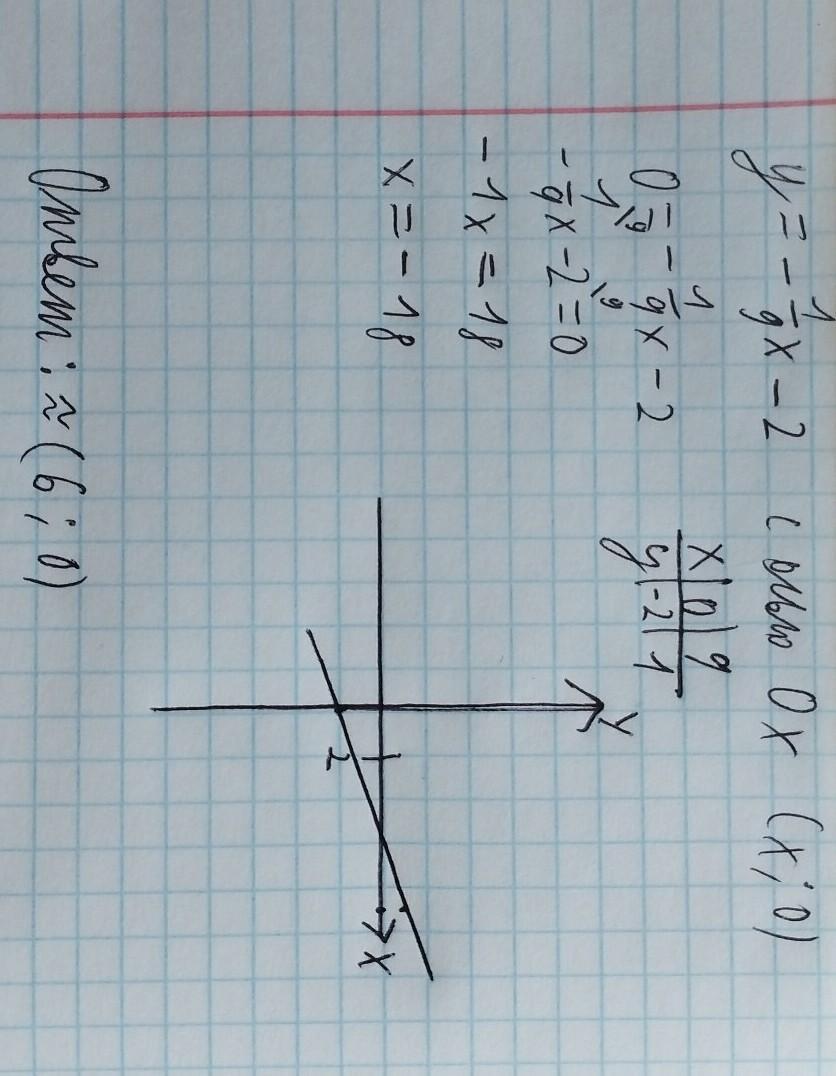 y = -1/9x - 2 с осью Ox (x; 0)
0 = -1/9x - 2
-1\9/9x - 2\9 = 0
-1x = 18
x = -18
x | 0 | 9
y | -2 | 1
y
2
x
Ответ: ≈ (6; 0)